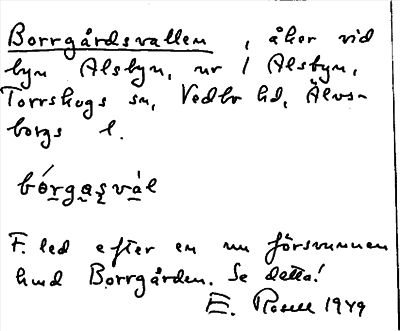 Borrgårdsvallen, åker vid
byn Alsbyn, nr 1 Alsbyn,
Torrskogs sn, Vedbo hd, Älvs-
borgs l.
bórgas̨vàl
F. led efter en nu försvunnen
hmd Borrgården. Se detta!
E. Rosell 1949